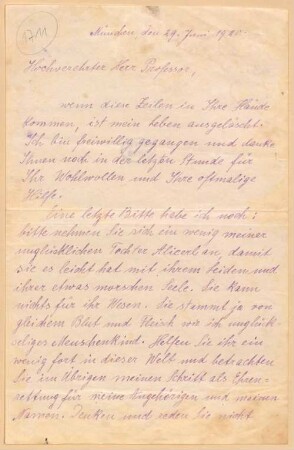 1711
München, den 29. Juni 1920.
Hochverehrter Herr Professor,
wenn diese Zeilen in Ihre Hände
kommen, ist mein Leben ausgelöscht.
Ich bin freiwillig gegangen und danke
Ihnen noch in der letzten Stunde für
Ihr Wohlwollen und Ihre oftmalige
Hilfe.
Eine letzte Bitte habe ich noch:
bitte nehmen Sie sich ein wenig meiner
unglücklichen Tochter an, damit
sie es leicht hat mit ihrem Leiden und
ihrer etwas morschen Seele. Sie kann
nichts für ihr Wesen. Sie stammt ja von
gleichem Blut und Fleisch wie ich unglück-
seliges Menschenkind. Helfen Sie ihr ein
wenig fort in dieser Welt und betrachten
Sie im Übrigen meinen Schritt als Ehren-
rettung für meine Angehörigen und meinen
Namen. Denken und reden Sie nicht